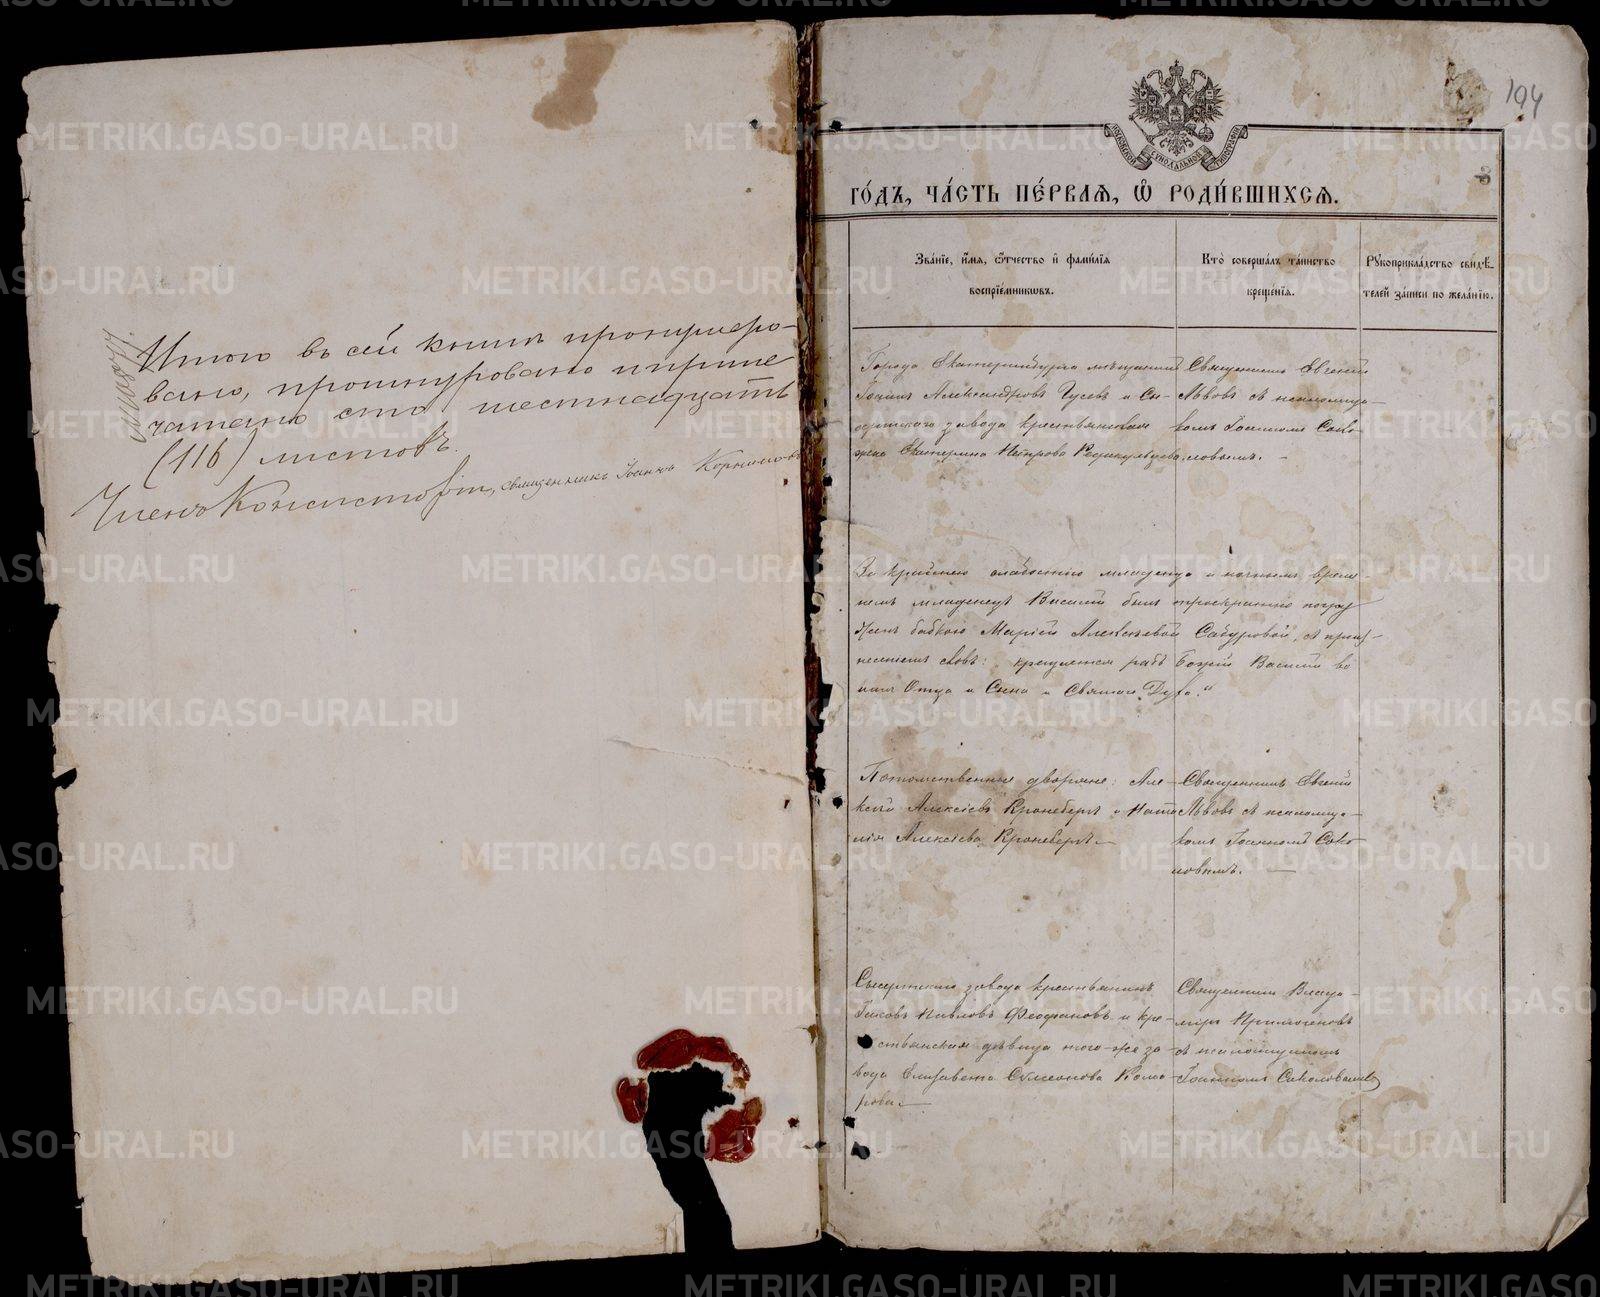 Итого въ сей книгѣ пронумеро-
вано, прошнуровано и припе
чатано сто шестнадцать
(116) листовъ.
Членъ Консисторіи, священникъ Іоаннъ Корниловъ
194
МОСКОВСКОЙ СѴНОДАЛЬНОЙ ТИПОГРАФІИ
3
ГО́ДЪ, ЧА́СТЬ ПЕ́РВАѦ, Ѡ҆ РОДИ́ВШИХСѦ.
Зва́нїе, и҆́мѧ, ѻ҆́тчество и҆ фами́лїѧ
воспрїе́мникѡвъ.
Кто̀ соверша́лъ та́инство
креще́нїѧ.
Рꙋкоприкла́дство свидѣ́-
телей за́писи по жела́нїю.
Города Екатеринбурга мѣщанинъ
Іоаннъ Александровъ Гусевъ и Сы-
сертскаго завода крестьянская
жена Екатерина Петрова
Священникъ Евгеній
Львовъ съ псаломщи-
комъ Іоанномъ Соко-
ловымъ. –
За крайнею слабостію младенца и ночнымъ време-
немъ младенецъ Василій былъ троекратно погру
женъ бабкою Маріей Алексѣевой Сабуровой, съ произ-
несеніемъ словъ: „крещается рабъ Божій Василій во
имя Отца и Сына и Святаго Духа.“
Потомственные дворяне: Але-
ксѣй Алексѣевъ Кронебергъ и Ната
лія Алексѣева Кронебергъ. –
Священникъ Евгеній
Львовъ съ псаломщи-
комъ Іоанномъ Соко-
ловымъ. –
Сысертскаго завода крестьянинъ
Іаковъ Павловъ Феофановъ и кре-
стьянская дѣвица того-же за-
вода Елизавета Сѵмеонова Кома-
рова. –
Священникъ Влади-
міръ Примогеновъ
съ псаломщикомъ
Іоанномъ Соколовымъ
METRIKI.GASO-URAL.RU